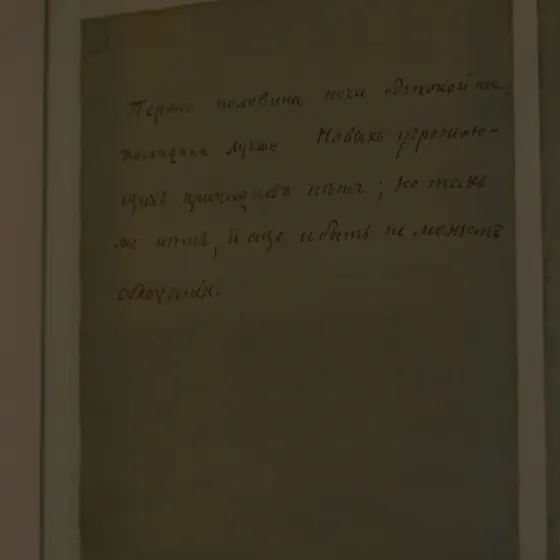 Первая половина ночи безпокойна,
последняя лучше. Новыхъ угрожаю-
щихъ припадковъ нѣтъ; но такъ
же нѣтъ, и еще и быть не можетъ
облегченія.